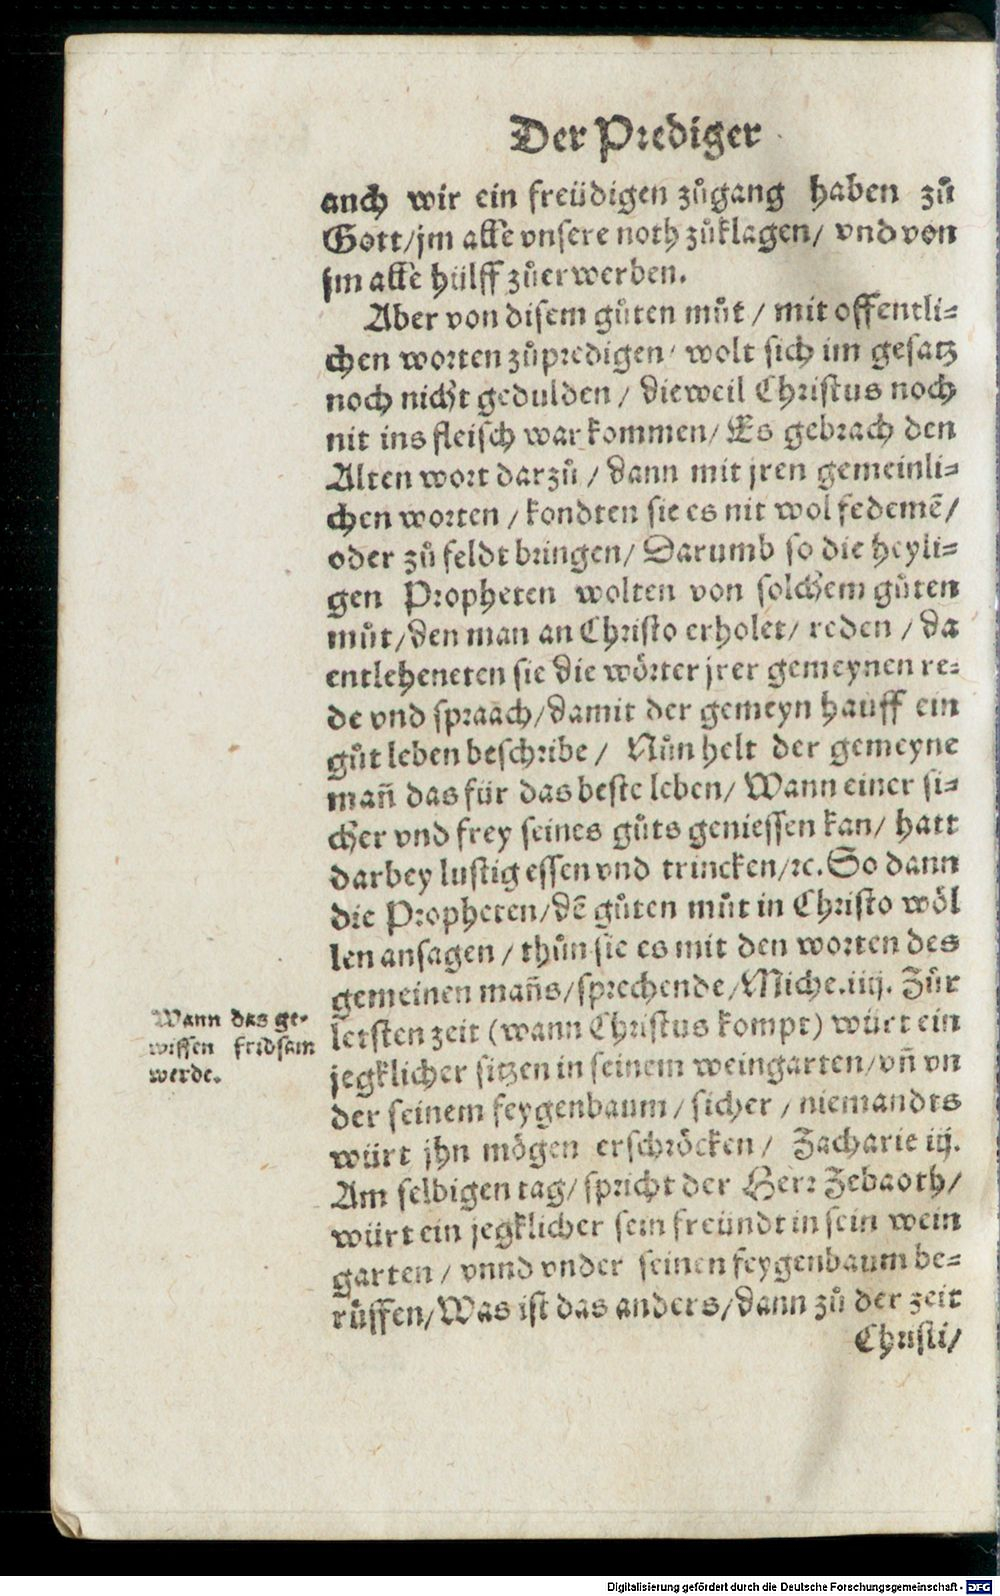 Der Prediger
auch wir ein freüdigen zůgang haben zů
Gott/jm alle vnsere noth zůklagen/ vnd von
jm alle hülff zůerwerben.
Aber von disem gůten můt / mit offentli=
chen worten zůpredigen/ wolt sich im gesatz
noch nicht gedulden / dieweil Christus noch
nit ins fleisch war kommen/ Es gebrach den
Alten wort darzů / dann mit jren gemeinli=
chen worten / kondten sie es nit wol fedemē/
oder zů feldt bringen/ Darumb so die heyli=
gen Propheten wolten von solchem gůten
můt/den man an Christo erholet/ reden / da
entleheneten sie die wörter jrer gemeynen re=
de vnd spraach/damit der gemeyn hauff ein
gůt leben beschribe / Nůn helt der gemeyne
mañ das für das beste leben/ Wann einer si=
cher vnd frey seines gůts geniessen kan/ hatt
darbey lustig essen vnd trincken/ꝛc. So dann
die Propheten/dē gůten můt in Christo wöl
len ansagen / thůn sie es mit den worten des
gemeinen mañs/sprechende/Miche.iiij. Zůr
letsten zeit (wann Christus kompt) würt ein
jegklicher sitzen in seinem weingarten/vñ vn
der seinem feygenbaum / sicher / niemandts
würt jhn mögen erschröcken / Zacharie iij.
Am selbigen tag/ spricht der Herr Zebaoth/
würt ein jegklicher sein freündt in sein wein
garten / vnnd vnder seinen feygenbaum be=
rüffen/Was ist das anders/dann zů der zeit
Christi/
Wann das ge=
wissen fridsam
werde.
Digitalisierung gefördert durch die Deutsche Forschungsgemeinschaft - DFG